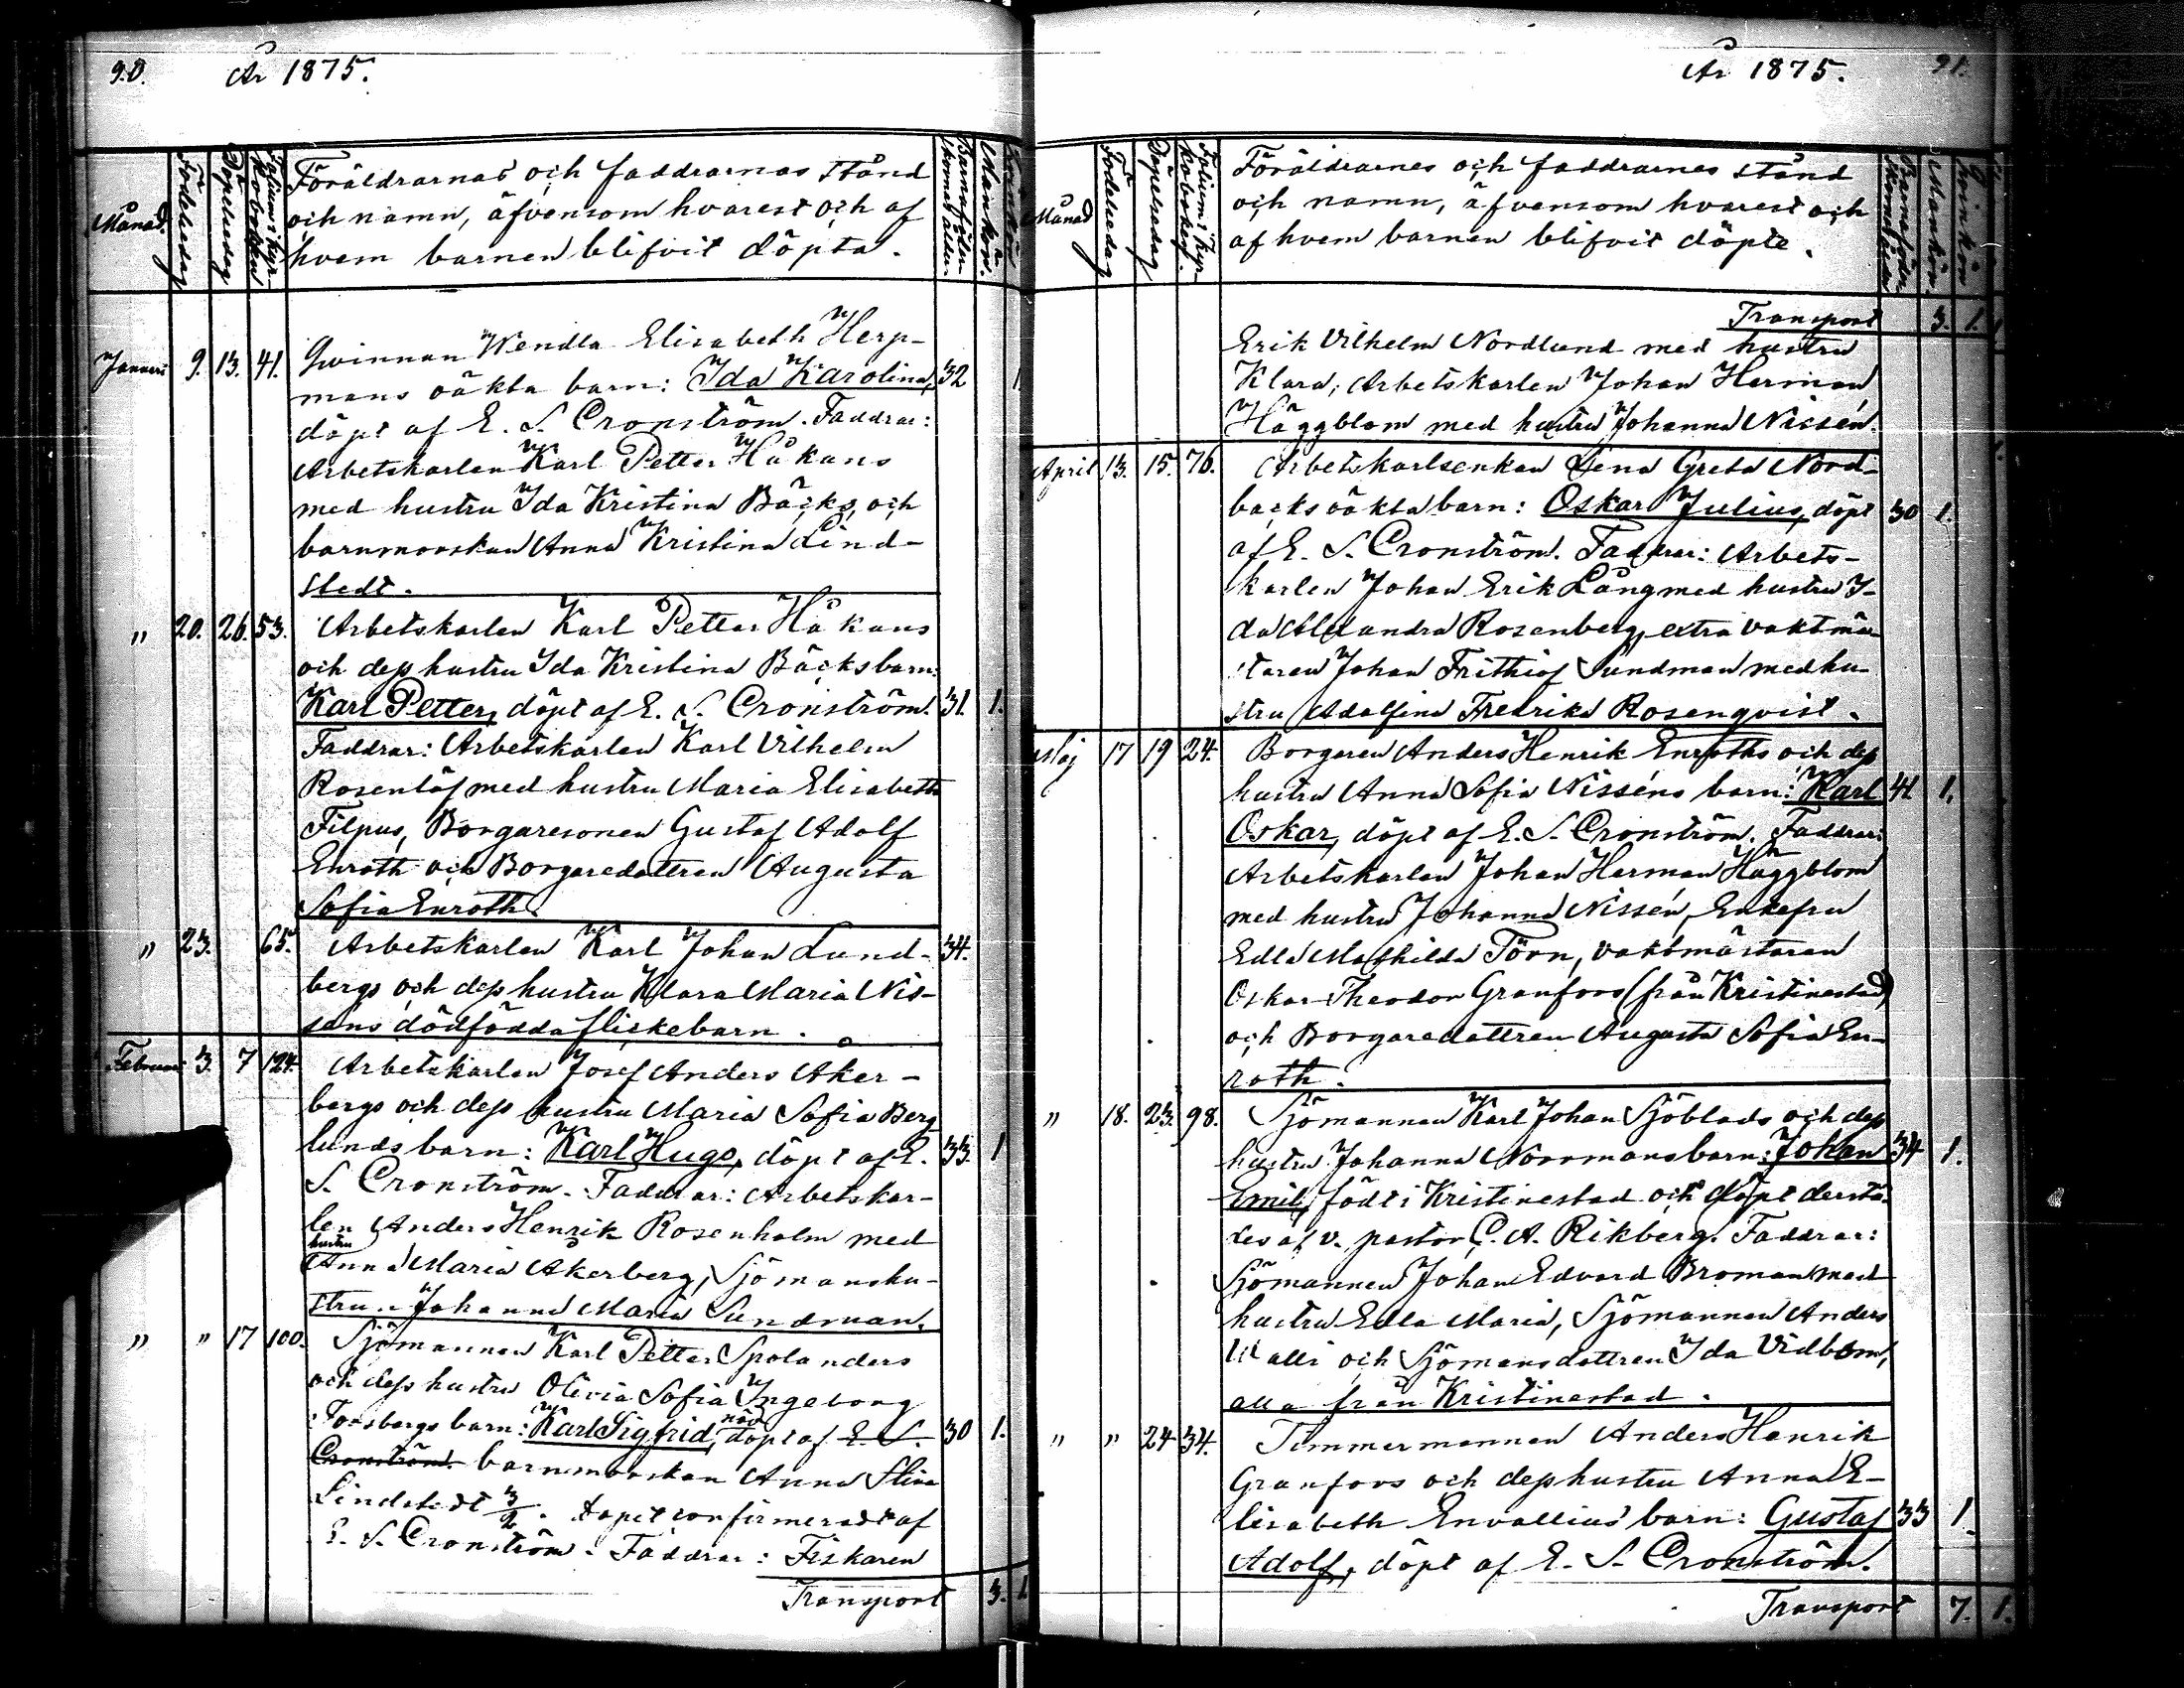 90.
År 1875.
Månad.
Födelsedag
Döpelsedag
Folium i Kyrkoboken
Föräldrarnas och faddrarnas stånd
och namn, äfvensom hvarest och af
hvem barnen blifvit döpta.
Barnaföderskornas ålder
Mankön.
Januari 9. 13. 41. Qvinnan Wendla Elisabeth Herp-
mans oäkta barn: Ida Karolina, 32 1
döpt af E. S. Cronström. Faddrar:
Arbetskarlen Karl Petter Håkans
med hustru Ida Kristina Bäcks, och
barnmorskan Anna Kristina Lind-
stedt.
" 20. 26. 53. Arbetskarlen Karl Petter Håkans
och dess hustru Ida Kristina Bäcks barn:
Karl Petter, döpt af E. S. Cronström. 31. 1.
Faddrar: Arbetskarlen Karl Vilhelm
Rosenlöf med hustru Maria Elisabeth
Filpus, Borgaresonen Gustaf Adolf
Enroth och Borgaredottren Augusta
Sofia Enroth.
" 23. 65. Arbetskarlen Karl Johan Lund- 34.
bergs och dess hustru Klara Maria Nis-
séns dödfödda flickebarn.
Februari 3. 7 124. Arbetskarlen Josef Anders Åker-
bergs och dess hustru Maria Sofia Berg
lunds barn: Karl Hugo, döpt af E. 33. 1
S. Cronström. Faddrar: Arbetskar-
len Anders Henrik Rosenholm med
hustru
Anna Maria Åkerberg, Sjömanshu-
stru Johanna Maria Sundman.
" " 17 100. Sjömannen Karl Petter Spolanders
och dess hustru Olivia Sofia Ingeborg
Forsbergs barn: Karl Sigfrid, nöddöpt af E. S. 30 1.
Cronström. barnmorskan Anna Stina
Lindstedt 3/2. dopet confirmeradt af
E. S. Cronström. Faddrar: Fiskaren
Transport 3. 1.
År 1875.
91.
Månad
Födelsedag
Döpelsedag
Folium i Kyrkoboken.
Föräldrarnes och faddrarnes stånd
och namn, äfvensom hvarest och
af hvem barnen blifvit döpte.
Mankön
Qvinkön
Transport 3. 1.
Erik Vilhelm Nordlund med hustru
Klara, Arbetskarlen Johan Herman
Häggblom med hustru Johanna Nissén.
April 13. 15. 76. Arbetskarlsenkan Lena Greta Nord-
backs oäkta barn: Oskar Julius, döpt 30 1.
af E. S. Cronström. Faddrar: Arbets-
karlen Johan Erik Lång med hustru I-
da Alexandra Rosenberg, extra vaktmä-
staren Johan Frithiof Sundman med hu-
stru Adolfina Fredrika Rosenqvist.
Maj 17 19 24. Borgaren Anders Henrik Enroths och dess
hustru Anna Sofia Nisséns barn: Karl 41 1.
Oskar, döpt af E. S. Cronström. Faddrar:
Arbetskarlen Johan Herman Häggblom
med hustru Johanna Nissén, Enkefru
Edla Mathilda Törn, vaktmästaren
Oskar Theodor Granfors (från Kristinestad)
och Borgaredottren Augusta Sofia En-
roth.
" 18. 23. 98. Sjömannen Karl Johan Sjöblads och dess
hustru Johanna Norrmans barn: Johan 34 1.
Emil, född i Kristinestad och döpt derstä-
des af v. pastor C. A. Rikberg. Faddrar:
Sjömannen Johan Edvard Broman med
hustru Edla Maria, Sjömannen Anders
Walli och Sjömansdottren Ida Vidbom,
alla från Kristinestad.
" " 24 34. Timmermannen Anders Henrik
Granfors och dess hustru Anna E-
lisabeth Envallius' barn: Gustaf 33 1.
Adolf, döpt af E. S. Cronström.
Transport 7. 1.